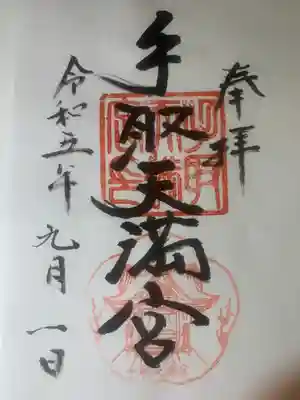 奉拝
手取天満宮
令和五年九月一日